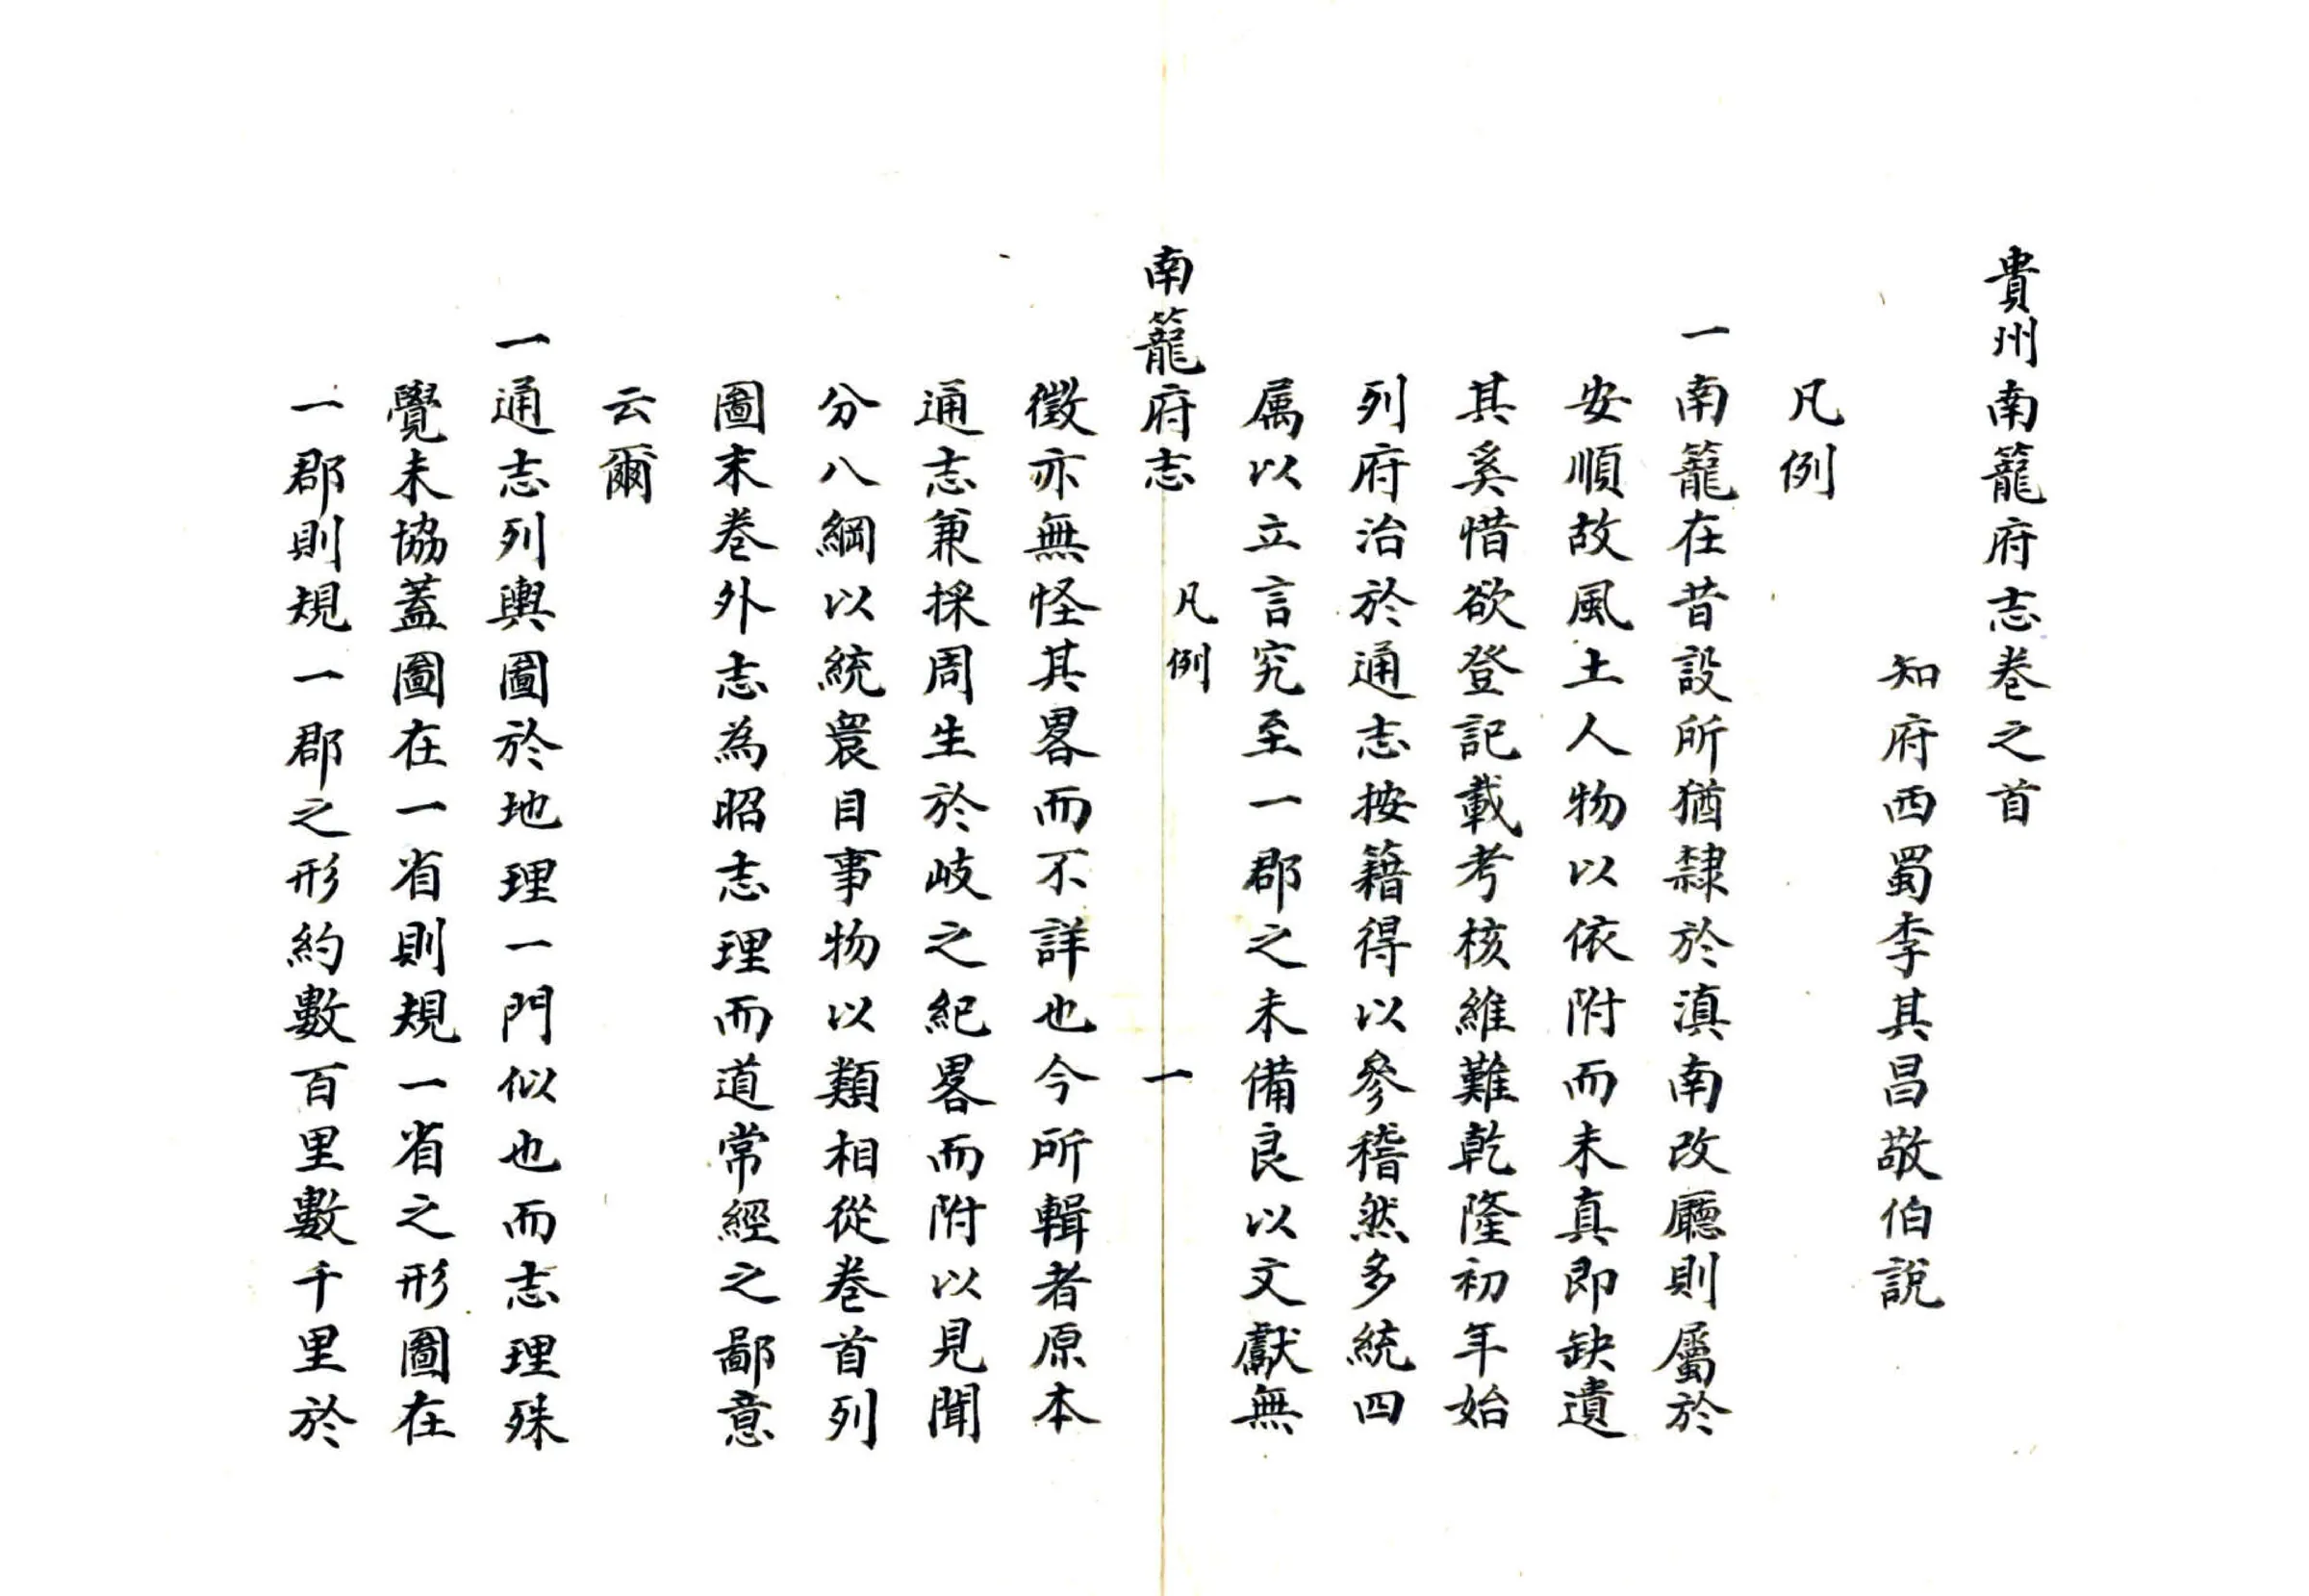 貴州南籠府志卷之首
知府西蜀李其昌敬伯說
凡例
一南籠在昔設所猶隸於滇南改廳則屬於
安順故風土人物以依附而未真即缺遺
其奚惜欲登記載考核維難乾隆初年始
列府治於通志按籍得以參稽然多統四
属以立言究至一郡之未備良以文獻無
南籠府志 凡例 一
徵亦無怪其畧而不詳也今所輯者原本
通志兼採周生於岐之紀畧而附以見聞
分八綱以統衆目事物以類相從卷首列
圖末卷外志為昭志理而道常經之鄙意
云爾
一通志列輿圖於地理一門似也而志理殊
覺未協蓋圖在一省則規一省之形圖在
一郡則規一郡之形約數百里數千里於